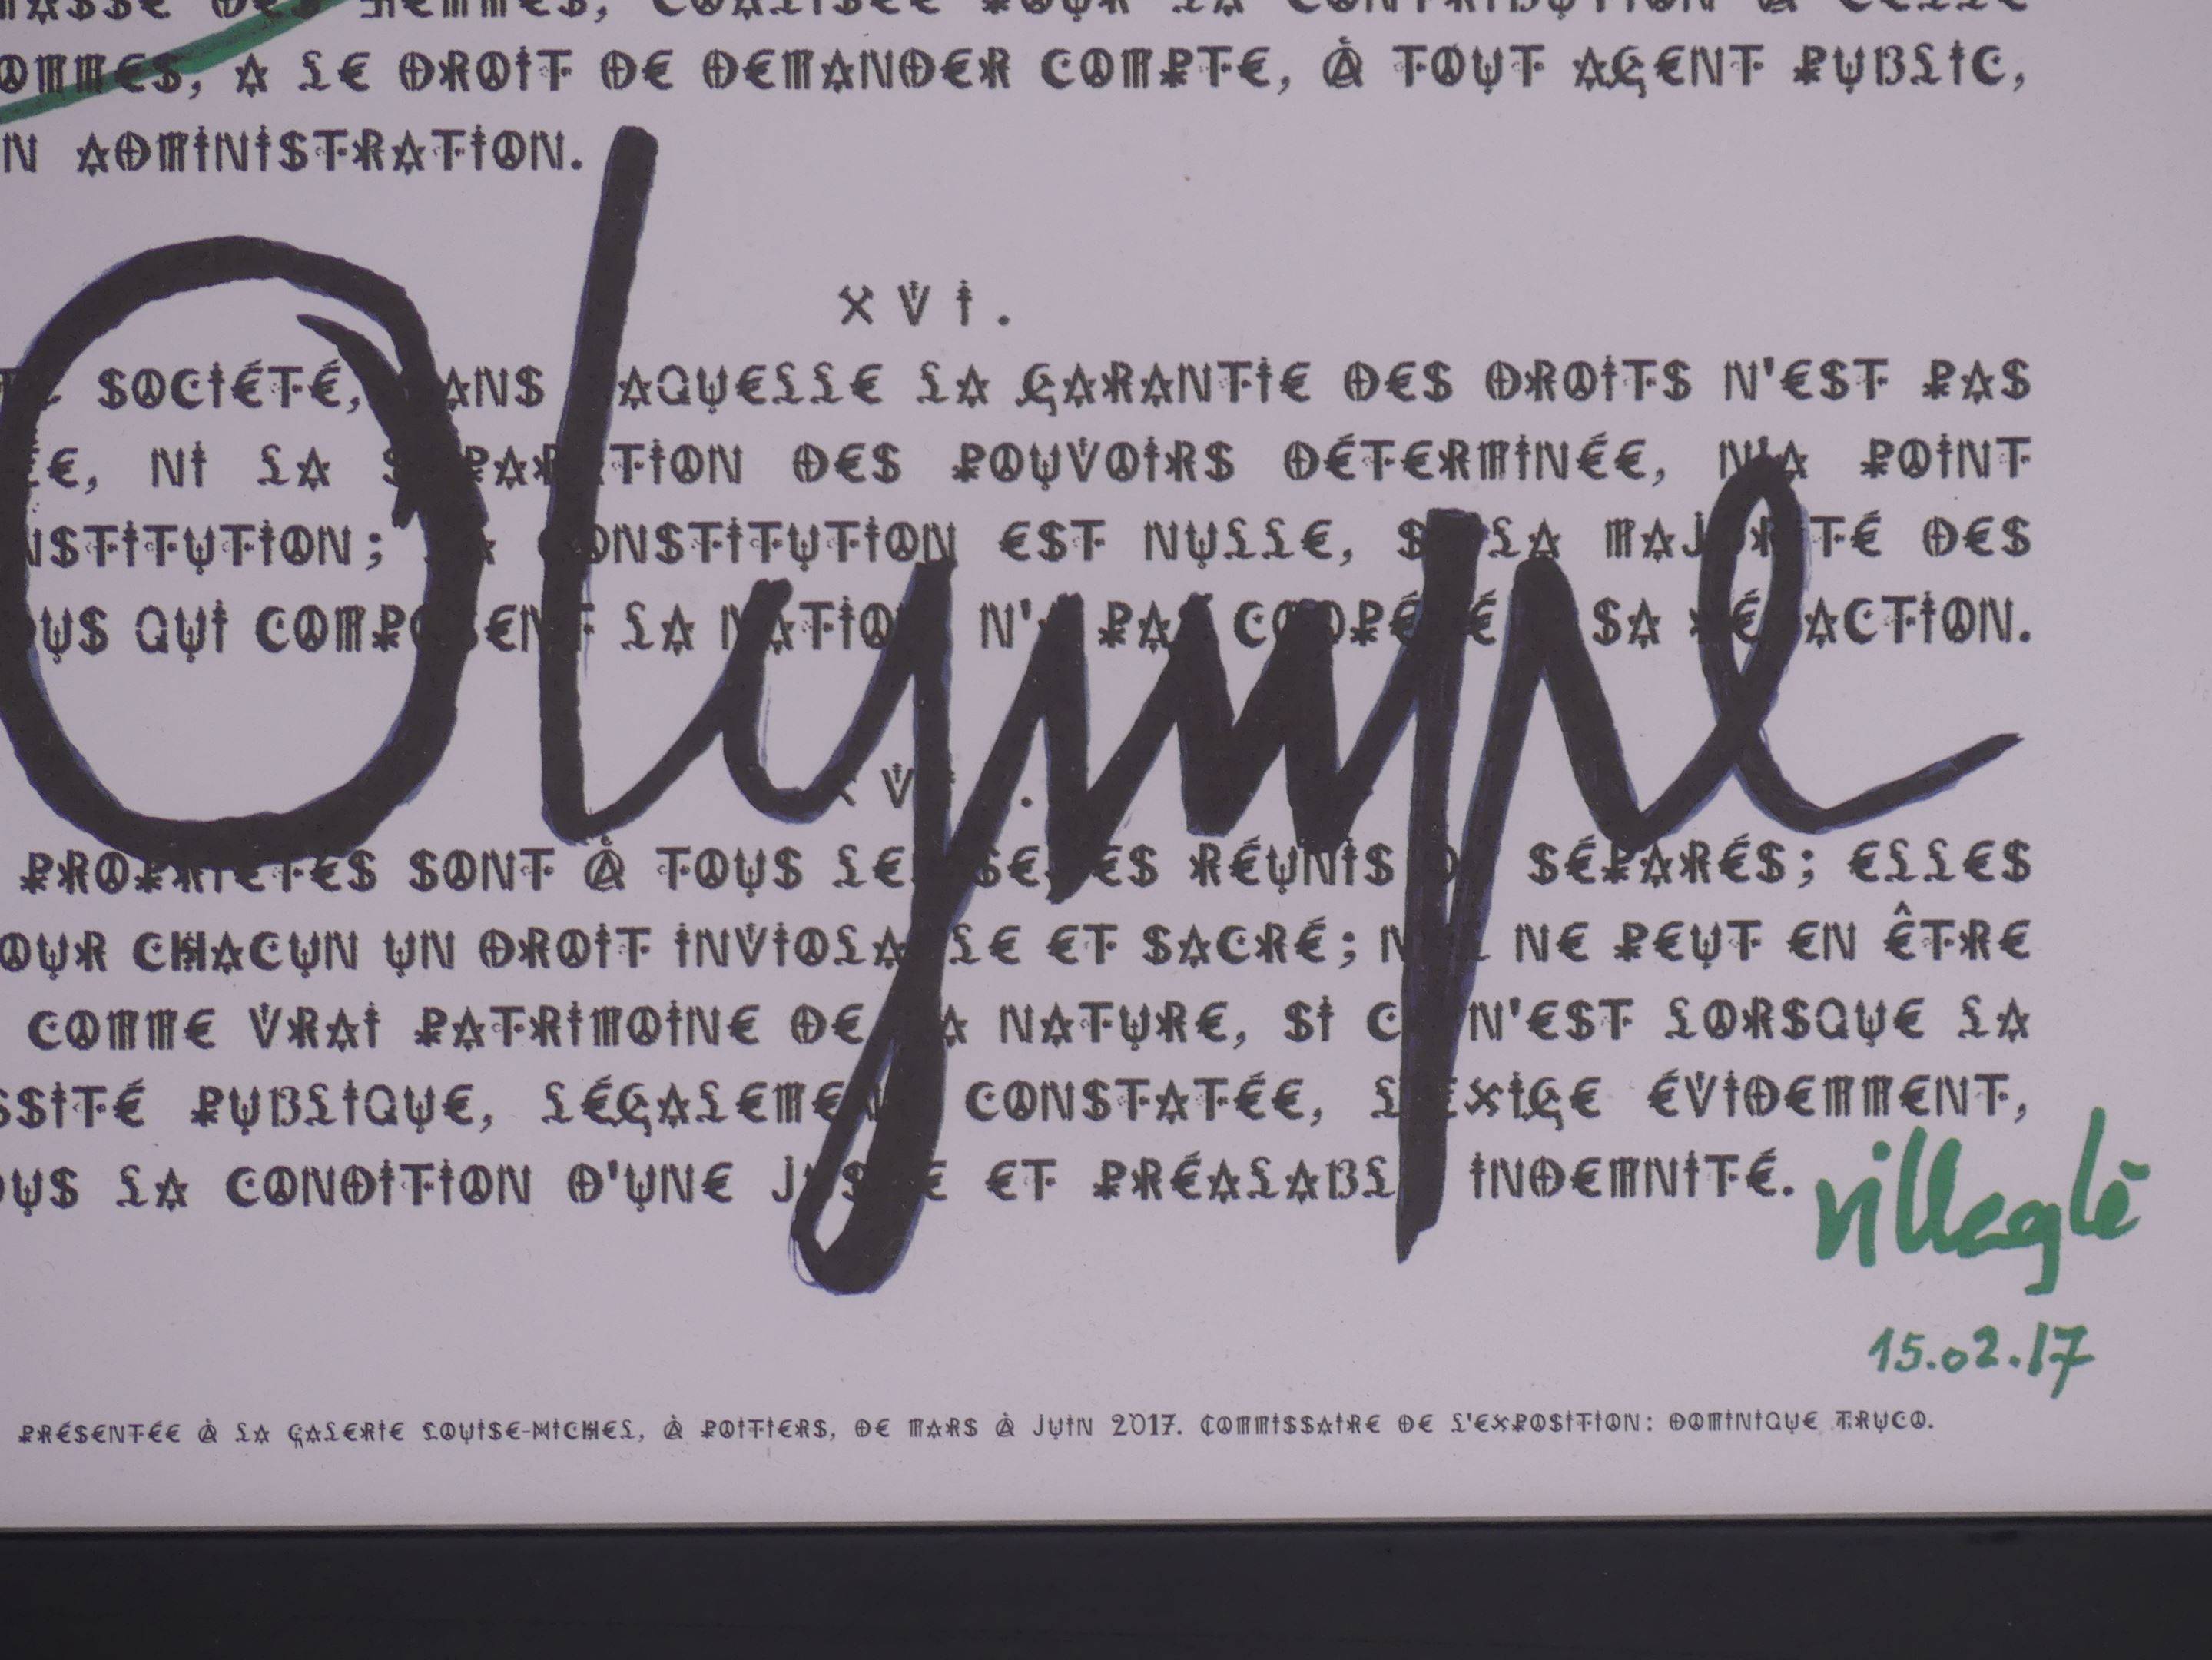 DES FEMMES, COALISÉE POUR LA CONTRIBUTION À CELLE
OMMES, A LE DROIT DE DEMANDER COMPTE, À TOUT AGENT PUBLIC,
N ADMINISTRATION.
XVI.
SOCIÉTÉ, ANS AQUELLE LA GARANTIE DES DROITS N'EST PAS
ÉE, NI LA SÉPARATION DES POUVOIRS DÉTERMINÉE, N'A POINT
NSTITUTION; LA CONSTITUTION EST NULLE, SI LA MAJORITÉ DES
US QUI COMPOSENT LA NATION N'A PAS COOPÉRÉ SA RÉDACTION.
Olympe
PROPRIÉTÉS SONT À TOUS LES SEXES RÉUNIS OU SÉPARÉS; ELLES
OUR CHACUN UN DROIT INVIOLABLE ET SACRÉ; NUL NE PEUT EN ÊTRE
COMME VRAI PATRIMOINE DE LA NATURE, SI CE N'EST LORSQUE LA
SSITÉ PUBLIQUE, LÉGALEMENT CONSTATÉE, L'EXIGE ÉVIDEMMENT,
OUS LA CONDITION D'UNE JUSTE ET PRÉALABLE INDEMNITÉ.
villeglé
15.02.17
PRÉSENTÉE À LA GALERIE LOUISE-MICHEL, À POITIERS, DE MARS À JUIN 2017. COMMISSAIRE DE L'EXPOSITION: DOMINIQUE TRUCO.